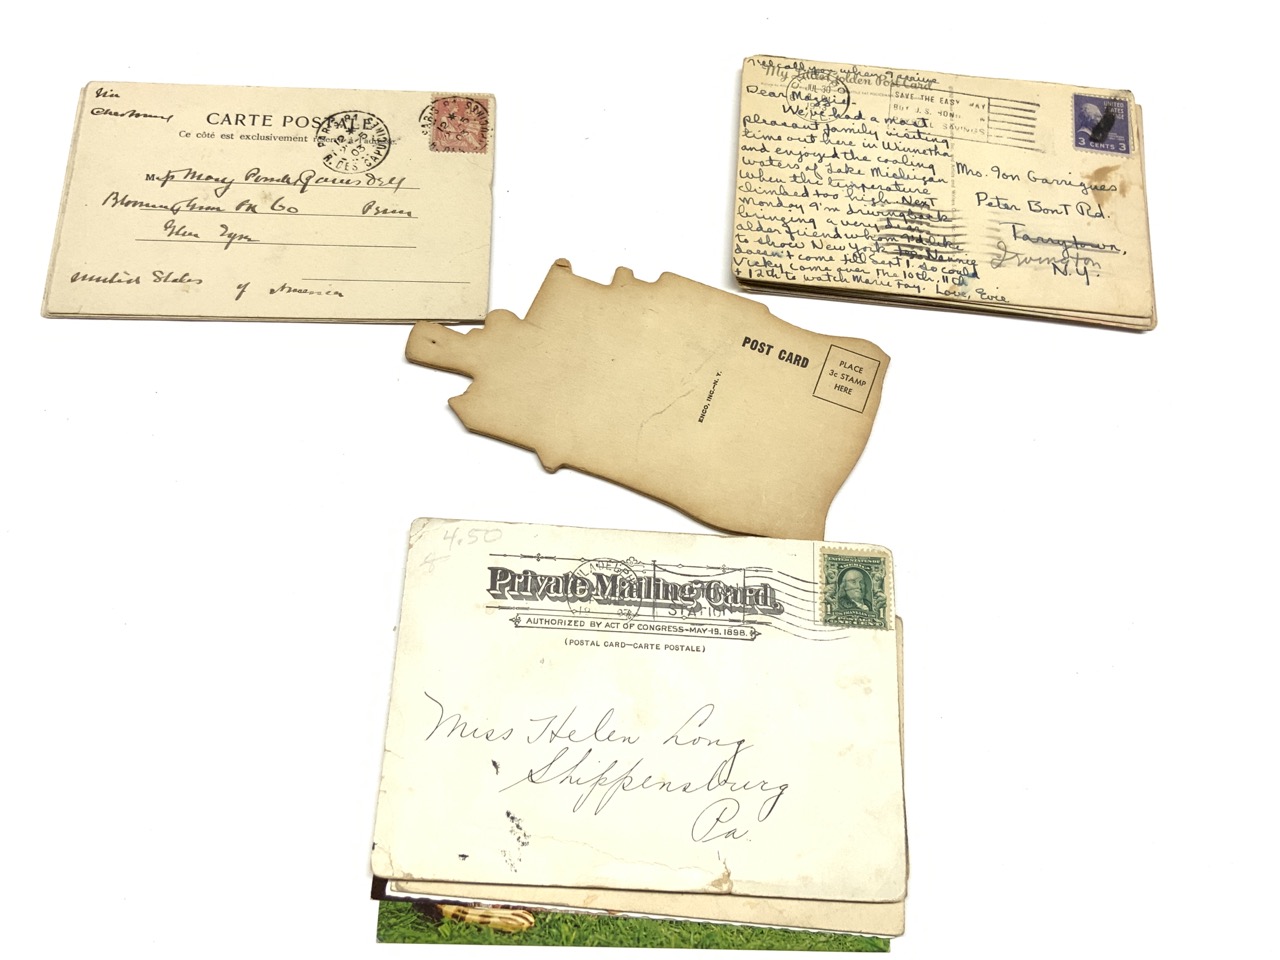 Via
Cherbourg
CARTE POSTALE
Ce côté est exclusivement réservé à l'adresse
PARIS
03
PARIS
Mary
Bloomington
Glen Eyre
United States of America
I'll call you when I arrive
My Little Golden Post Card
JUL 30
SAVE THE EASY WAY
BUY U.S. BONDS
PAYROLL SAVINGS
UNITED STATES POSTAGE
3 CENTS 3
Dear Margie,
We've had a most
pleasant family visiting
time out here in Winnetka
and enjoyed the cooling
waters of Lake Michigan
when the temperature
climbed too high. Next
Monday I'm driving back
bringing a very dear
older friend whom I'd like
to show New York too. Nannie
doesn't come till Sept 1. so could
Vicky come over the 10th, 11th
+ 12th to watch Marie Fay. Love, Evie
Mrs. Jon Garrigues
Peter Bont Rd.
Tarrytown,
Irvington
N.Y.
POST CARD
PLACE
3c STAMP
HERE
ENCO, INC.-N.Y.
4.50
Private Mailing Card.
AUTHORIZED BY ACT OF CONGRESS-MAY-19, 1898.
(POSTAL CARD—CARTE POSTALE)
PHILADELPHIA
STATION
UNITED STATES OF AMERICA
1
Miss Helen Long
Shippensburg
Pa.